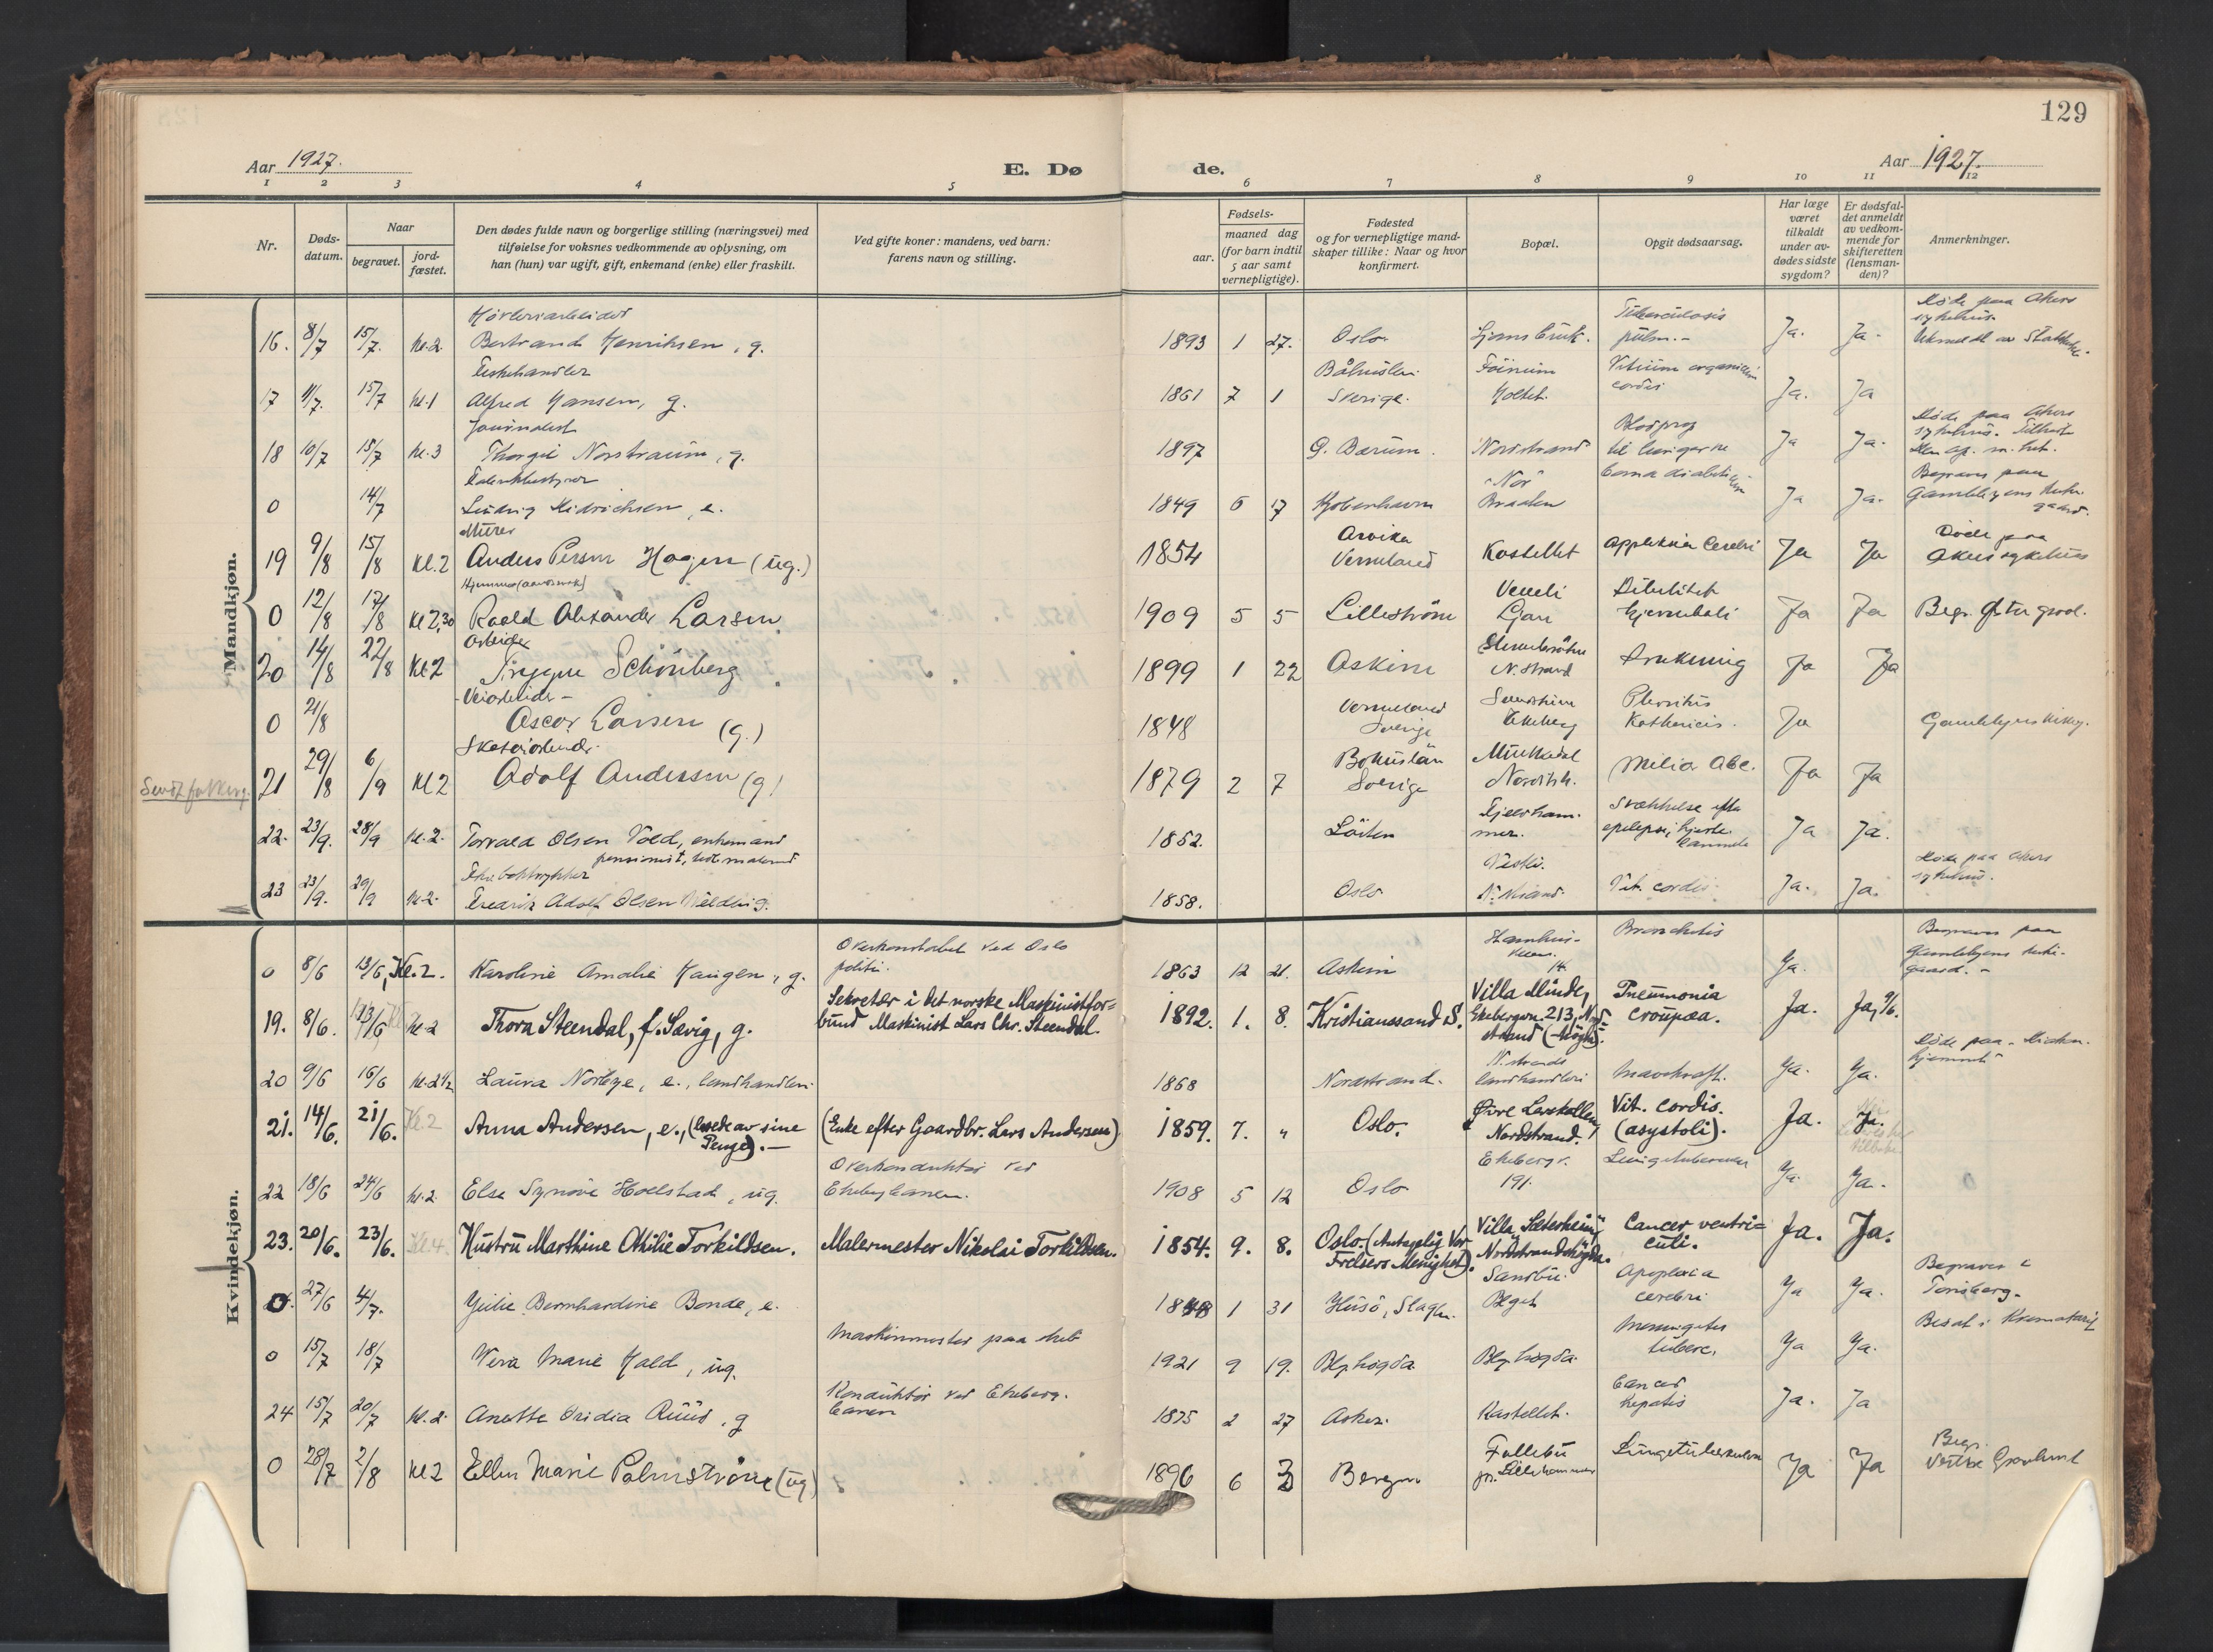 129
Aar 1927.
E. Dø
de.
Aar 1927.
1 2 3 4 5 6 7 8 9 10 11 12
Nr.
Døds-
datum.
Naar
begravet.
jord-
fæstet.
Den dødes fulde navn og borgerlige stilling (næringsvei) med
tilføielse for voksnes vedkommende av oplysning, om
han (hun) var ugift, gift, enkemand (enke) eller fraskilt.
Ved gifte koner: mandens, ved barn:
farens navn og stilling.
Fødsels-
aar.
maaned dag
(for barn indtil
5 aar samt
vernepligtige).
Fødested
og for vernepligtige mand-
skaper tillike: Naar og hvor
konfirmert.
Bopæl.
Opgit dødsaarsag.
Har læge
været
tilkaldt
under av-
dødes sidste
sygdom?
Er dødsfal-
det anmeldt
av vedkom-
mende for
skifteretten
(lensman-
den)?
Anmerkninger.
Mandkjøn.
16. 8/7 15/7. kl. 2. Bertrand Henriksen, g. 1893 1 27. Oslo. Ljansbruk. Tuberculosis pulm. - Ja. Ja. Døde paa Akers sykehus.
Fiskehandler
17 11/7. 15/7 kl. 1 Alfred Hansen, g. 1861 7 1 Sverige. Holtet. Vitium organicum cordis Ja. Ja
Journalist
18 10/7 15/7 kl. 3 Thorgil Norstraum, g. 1897 Ø. Bærum. Nordstrand Blodprop til lungerne Ja Ja. Døde paa Akers sykehus.
0 14/7 Ludvig Didrichsen, e. 1849 6 17 Kjøbenhavn Braaten Coma diabeticum Ja Ja. Begraves paa Gamlebyens kirkegaard.
Murer
19 9/8 15/8 kl. 2 Anders Person Hagen (ug.) 1854 Arvika Vermeland Kastellet Appleksia Cerebri Ja Ja Døde paa Akers sykehus
0 12/8 17/8 kl 2,30 Roald Alexander Larsen 1909 5 5 Lilleström Ljan Ja Ja Begr. Østre gravl.
Arbeider
20 14/8 22/8 kl 2 Trygve Schönberg 1899 1 22 Askim N. Strand Drukning Ja Ja
- Veiarbeider -
0 21/8 Oscar Larsen (g.) 1848 Vermeland Sverige Ekeberg Ja Gamlebyens kirkeg.
Skotøiarbeider.
21 29/8 6/9 kl 2 Adolf Andersen (g) 1879 2 7 Bohuslän Sverige Nordstr. Ja Ja
22. 23/9. 28/9 kl. 2. Torvald Olsen Vold, enkemand 1852. Löiten Fjeldhammer. Svækkelse efter epilepsi, hjertelammelse Ja Ja.
23 23/9. 29/9 kl. 2. Fredrik Adolf Olsen g. 1858. Oslo N. Strand. Vit. cordis. Ja. Ja. Døde paa Akers sykehus.
Kvindekjøn.
0 8/6 13/6, Kl. 2. Karoline Amalie Haugen, g. Overkonstabel ved Oslo politi. 1863 12 21. Askim Bronchitis Ja. Begraves paa Gamlebyens kirkegaard. -
19. 8/6. 13/6 kl. 2 Thora Steendal, f. Sævig, g. Sekretær i det norske Maskinistfor=
bund Maskinist Lars Chr. Steendal. 1892. 1. 8. Kristianssand S. Villa Minde, Ekebergvn. 213, Nord-
strand (-høgda). Pneumonia croupæa. Ja. Ja, 9/6.
20 9/6 16/6 kl. 2 1/2 Laura Norbye, e., landhandleri. 1868 Nordstrand. N. strands landhandleri Mavekræft. Ja. Ja. Døde paa Diakon. hjemmet
21. 14/6. 21/6. Kl. 2 Anna Andersen, e., (levede av sine
Penge). - (Enke efter Gaardbr. Lars Andersen) 1859. 7. " Oslo. Øvre Lerskallen, Nordstrand. Vit. cordis. (asystoli). Ja. Ja.
22 18/6 24/6 kl. 2. Else Synnøve Hoelstad, ug. Overkonduktør ved Ekebergbanen. 1908 5 12 Oslo Ekebergv. 191. Lungetuberculose Ja. Ja.
23. 20/6. 23/6. Kl. 4. Hustru Marthine Othilie Torkildsen. Malermester Nikolai Torkildsen. 1854. 9. 8. Oslo. (Antagelig Vor
Frelsers Menighet). Villa Sæterheim, Nordstrandshøgda. Cancer ventri=
culi. Ja. Ja.
0. 27/6 4/7. Julie Bernhardine Bonde, e. 1848 1 31 Husö, Slagen. Sandbu. Apoplexia cerebri Ja Ja. Begraves i Tønsberg.
0 15/7 18/7 Vera Marie Hald, ug. Maskinmester paa 1921 9 19. Blg. høgda Blg. høgda. Meningitis tuberc. Ja Ja. Bisat i Krematoriet
24 15/7 20/7 kl. 2. Anette Ovidia Ruud, g Konduktør ved Ekebergbanen 1875 2 27 Asker. Kastellet. Cancer hepatis Ja. Ja
0 28/7 2/8 kl 2 Ellen Marie Palmstrøm (ug) 1896 6 3 Bergen Follebu pr. Lillehammer Lungetuberkulose Ja Ja Begr. Vestre Gravlund